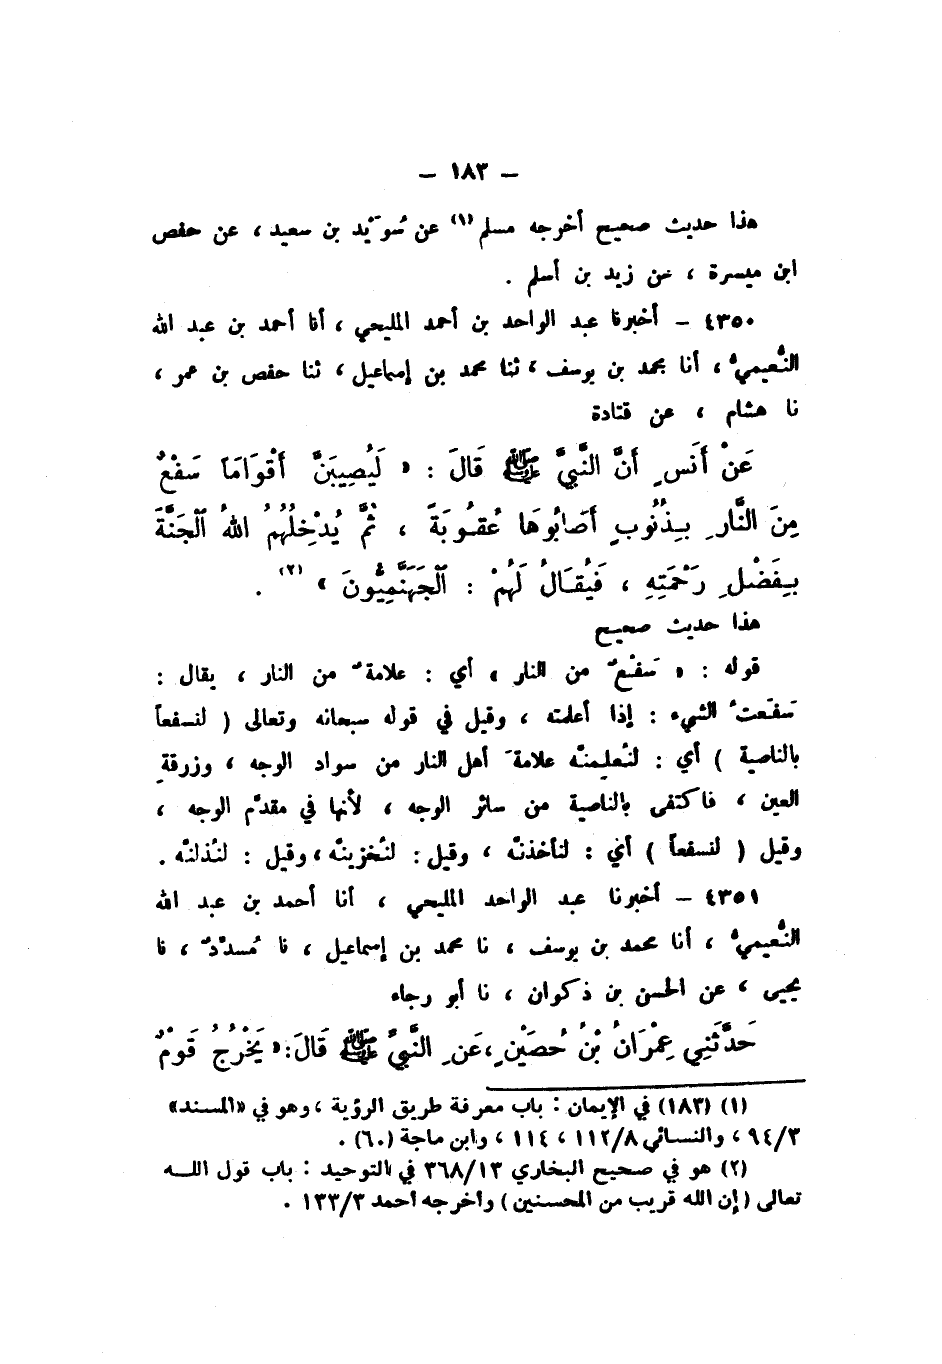 – ١٨٣ –
هذا حديث صحيح أخرجه مسلم (١) عن سُوَيْد بن سعيد ، عن حفص
ابن ميسرة ، عن زيد بن أسلم .
٤٣٥٠ – أخبرنا عبد الواحد بن أحمد المليحي ، أنا أحمد بن عبد الله
النُّعيميُّ ، أنا محمد بن يوسف ، ثنا محمد بن إسماعيل ، ثنا حفص بن عمر ،
نا هشام ، عن قتادة
عَنْ أَنَسٍ أَنَّ النَّبِيَّ ﷺ قَالَ : « لَيُصِيبَنَّ أَقْوَامَاً سَفْعٌ
مِنَ النَّارِ بِذُنُوبٍ أَصَابُوهَا عُقُوبَةً ، ثُمَّ يُدْخِلُهُمُ اللهُ ٱلْجَنَّةَ
بِفَضْلِ رَحْمَتِهِ ، فَيُقَالُ لَهُمْ : ٱلْجَهَنَّمِيُّونَ » (٢) .
هذا حديث صحيح
قوله : « سَفْعٌ من النار » أي : علامةٌ من النار ، يقال :
سَفَعتُ الشيء : إذا أعلمته ، وقيل في قوله سبحانه وتعالى ( لنسفعاً
بالناصية ) أي : لنُعلِمنَّه علامةَ أهل النار من سواد الوجه ، وزرقةِ
العين ، فاكتفى بالناصية من سائر الوجه ، لأنها في مقدَّم الوجه ،
وقيل ( لنسفعاً ) أي : لنأخذنَّه ، وقيل : لنُخزينَّه ، وقيل : لنُذلنَّه .
٤٣٥١ – أخبرنا عبد الواحد المليحي ، أنا أحمد بن عبد الله
النُّعيميُّ ، أنا محمد بن يوسف ، نا محمد بن إسماعيل ، نا مُسدَّدٌ ، نا
يحيى ، عن الحسن بن ذكوان ، نا أبو رجاء
حَدَّثَنِي عِمْرَانُ بْنُ حُصَيْنٍ ، عَنِ النَّبِيِّ ﷺ قَالَ : « يَخْرُجُ قَوْمٌ
(١) (١٨٣) في الإيمان : باب معرفة طريق الرؤية ، وهو في «المسند»
٩٤/٣ ، والنسائي ١١٢/٨ ، ١١٤ ، وابن ماجة (٦٠) .
(٢) هو في صحيح البخاري ٣٦٨/١٣ في التوحيد : باب قول اللــه
تعالى (إن الله قريب من المحسنين) وأخرجه أحمد ١٣٣/٣ .